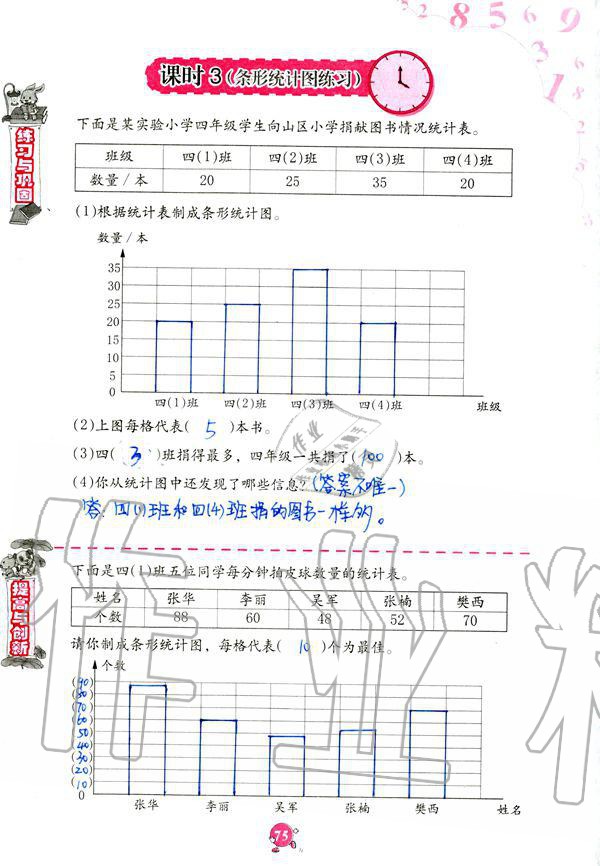 课时3(条形统计图练习)
练习与巩固
下面是某实验小学四年级学生向山区小学捐献图书情况统计表。
班级 四(1)班 四(2)班 四(3)班 四(4)班
数量/本 20 25 35 20
(1)根据统计表制成条形统计图。
数量/本
35
30
25
20
15
10
5
0
四(1)班 四(2)班 四(3)班 四(4)班 班级
(2)上图每格代表( 5 )本书。
(3)四( 3 )班捐得最多,四年级一共捐了( 100 )本。
(4)你从统计图中还发现了哪些信息?(答案不唯一)
答:四(1)班和四(4)班捐的图书一样多的。
提高与创新
下面是四(1)班五位同学每分钟拍皮球数量的统计表。
姓名 张华 李丽 吴军 张楠 樊西
个数 88 60 48 52 70
请你制成条形统计图,每格代表( 10 )个为最佳。
个数
(90)
(80)
(70)
(60)
(50)
(40)
(30)
(20)
(10)
0
张华 李丽 吴军 张楠 樊西 姓名
75